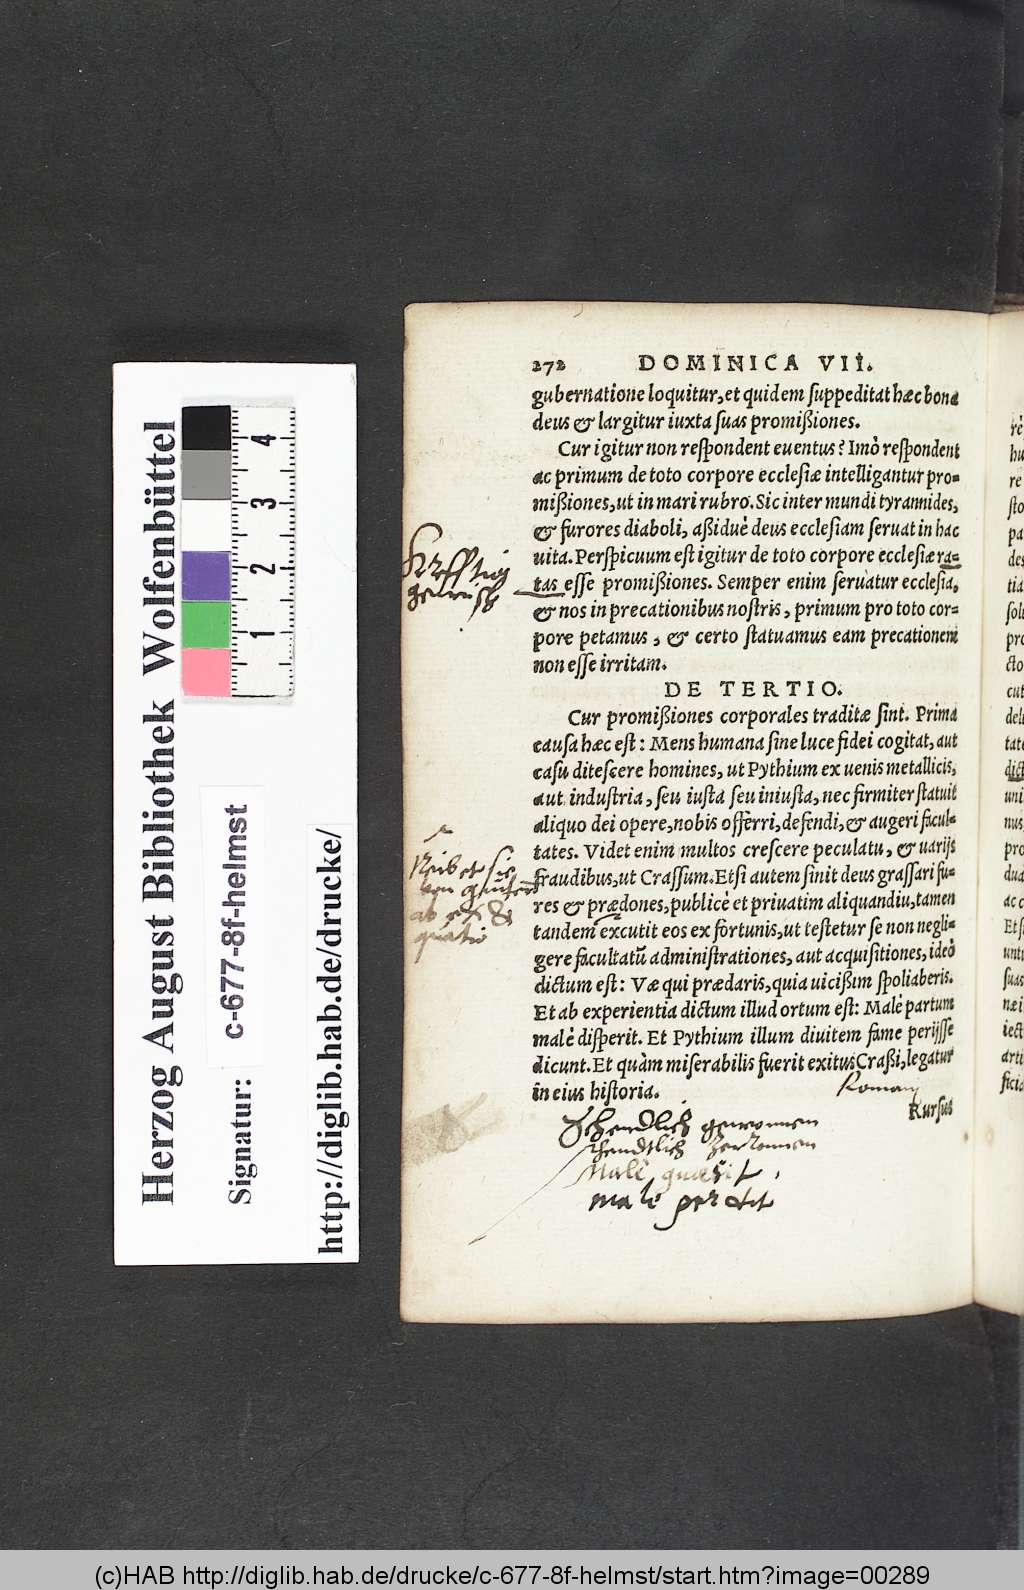 272 DOMINICA VII.
gubernatione loquitur, et quidem ſuppeditat hæc bona
deus & largitur iuxta ſuas promißiones.
Cur igitur non reſpondent euentus? Imò reſpondent
ac primum de toto corpore eccleſiæ intelligantur pro=
mißiones, ut in mari rubro. Sic inter mundi tyrannides,
& furores diaboli, aßiduè deus eccleſiam ſeruat in hac
uita. Perſpicuum eſt igitur de toto corpore eccleſiæ ra=
tas eſſe promißiones. Semper enim ſeruatur eccleſia,
& nos in precationibus noſtris, primum pro toto cor=
pore petamus, & certo ſtatuamus eam precationem
non eſſe irritam.
DE TERTIO.
Cur promißiones corporales traditæ ſint. Prima
cauſa hæc eſt: Mens humana ſine luce fidei cogitat, aut
caſu diteſcere homines, ut Pythium ex uenis metallicis,
aut induſtria, ſeu iuſta ſeu iniuſta, nec firmiter ſtatuit
aliquo dei opere, nobis offerri, defendi, & augeri facul=
tates. Videt enim multos creſcere peculatu, & uarijs
fraudibus, ut Craſſum. Etſi autem ſinit deus graſſari fu=
res & prædones, publicè et priuatim aliquandiu, tamen
tandem excutit eos ex fortunis, ut teſtetur ſe non negli=
gere facultatũ adminiſtrationes, aut acquiſitiones, ideò
dictum eſt: Væ qui prædaris, quia uicißim ſpoliaberis.
Et ab experientia dictum illud ortum eſt: Malè partum
malè diſperit. Et Pythium illum diuitem fame perijſſe
dicunt. Et quàm miſerabilis fuerit exitus Craßi, legatur
in eius hiſtoria.
Romani
Rurſus
Schendlich gewonnen
ſchendtlich Zerronnen
Malè quæsit,
male perdit
Herzog August Bibliothek Wolfenbüttel
Signatur: c-677-8f-helmst
http://diglib.hab.de/drucke/
1 2 3 4
(c)HAB http://diglib.hab.de/drucke/c-677-8f-helmst/start.htm?image=00289